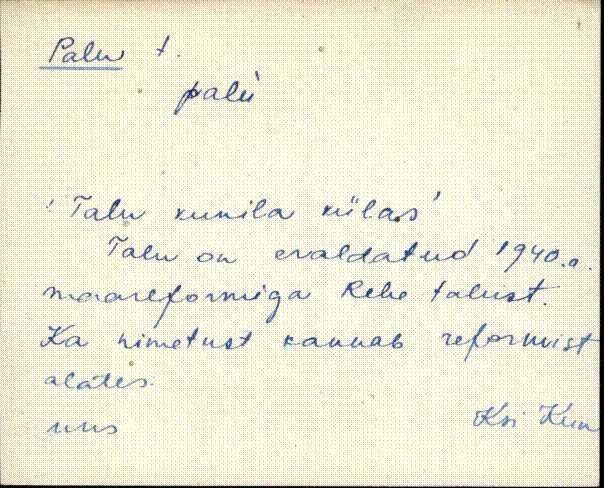 Palu t.
palu
'Talu Kunila külas'
Talu on eraldatud 1940.a.
maareformiga Rehe talust.
Ka nimetust kannab reformist
alates.
Ksi Kun